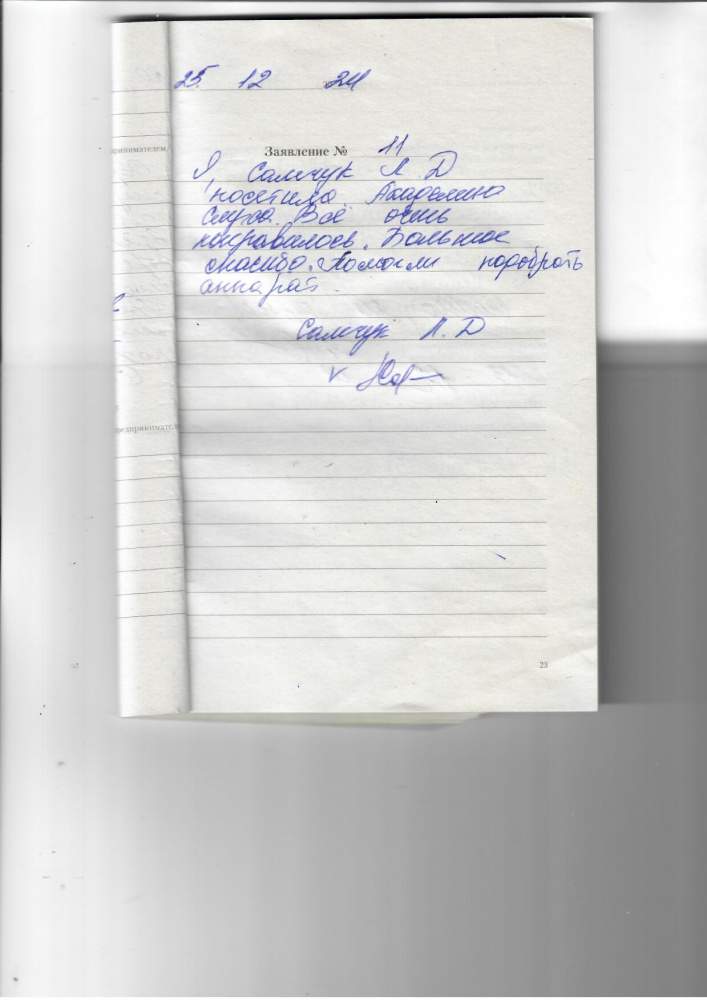 25. 12 24
ринимателем,
Заявление № 11
Я, Самчук Л Д
посетила Академию
слуха. Всё очень
понравилось. Большое
спасибо. Помогли подобрать
аппарат.
Самчук Л. Д
v
редпринимател
23